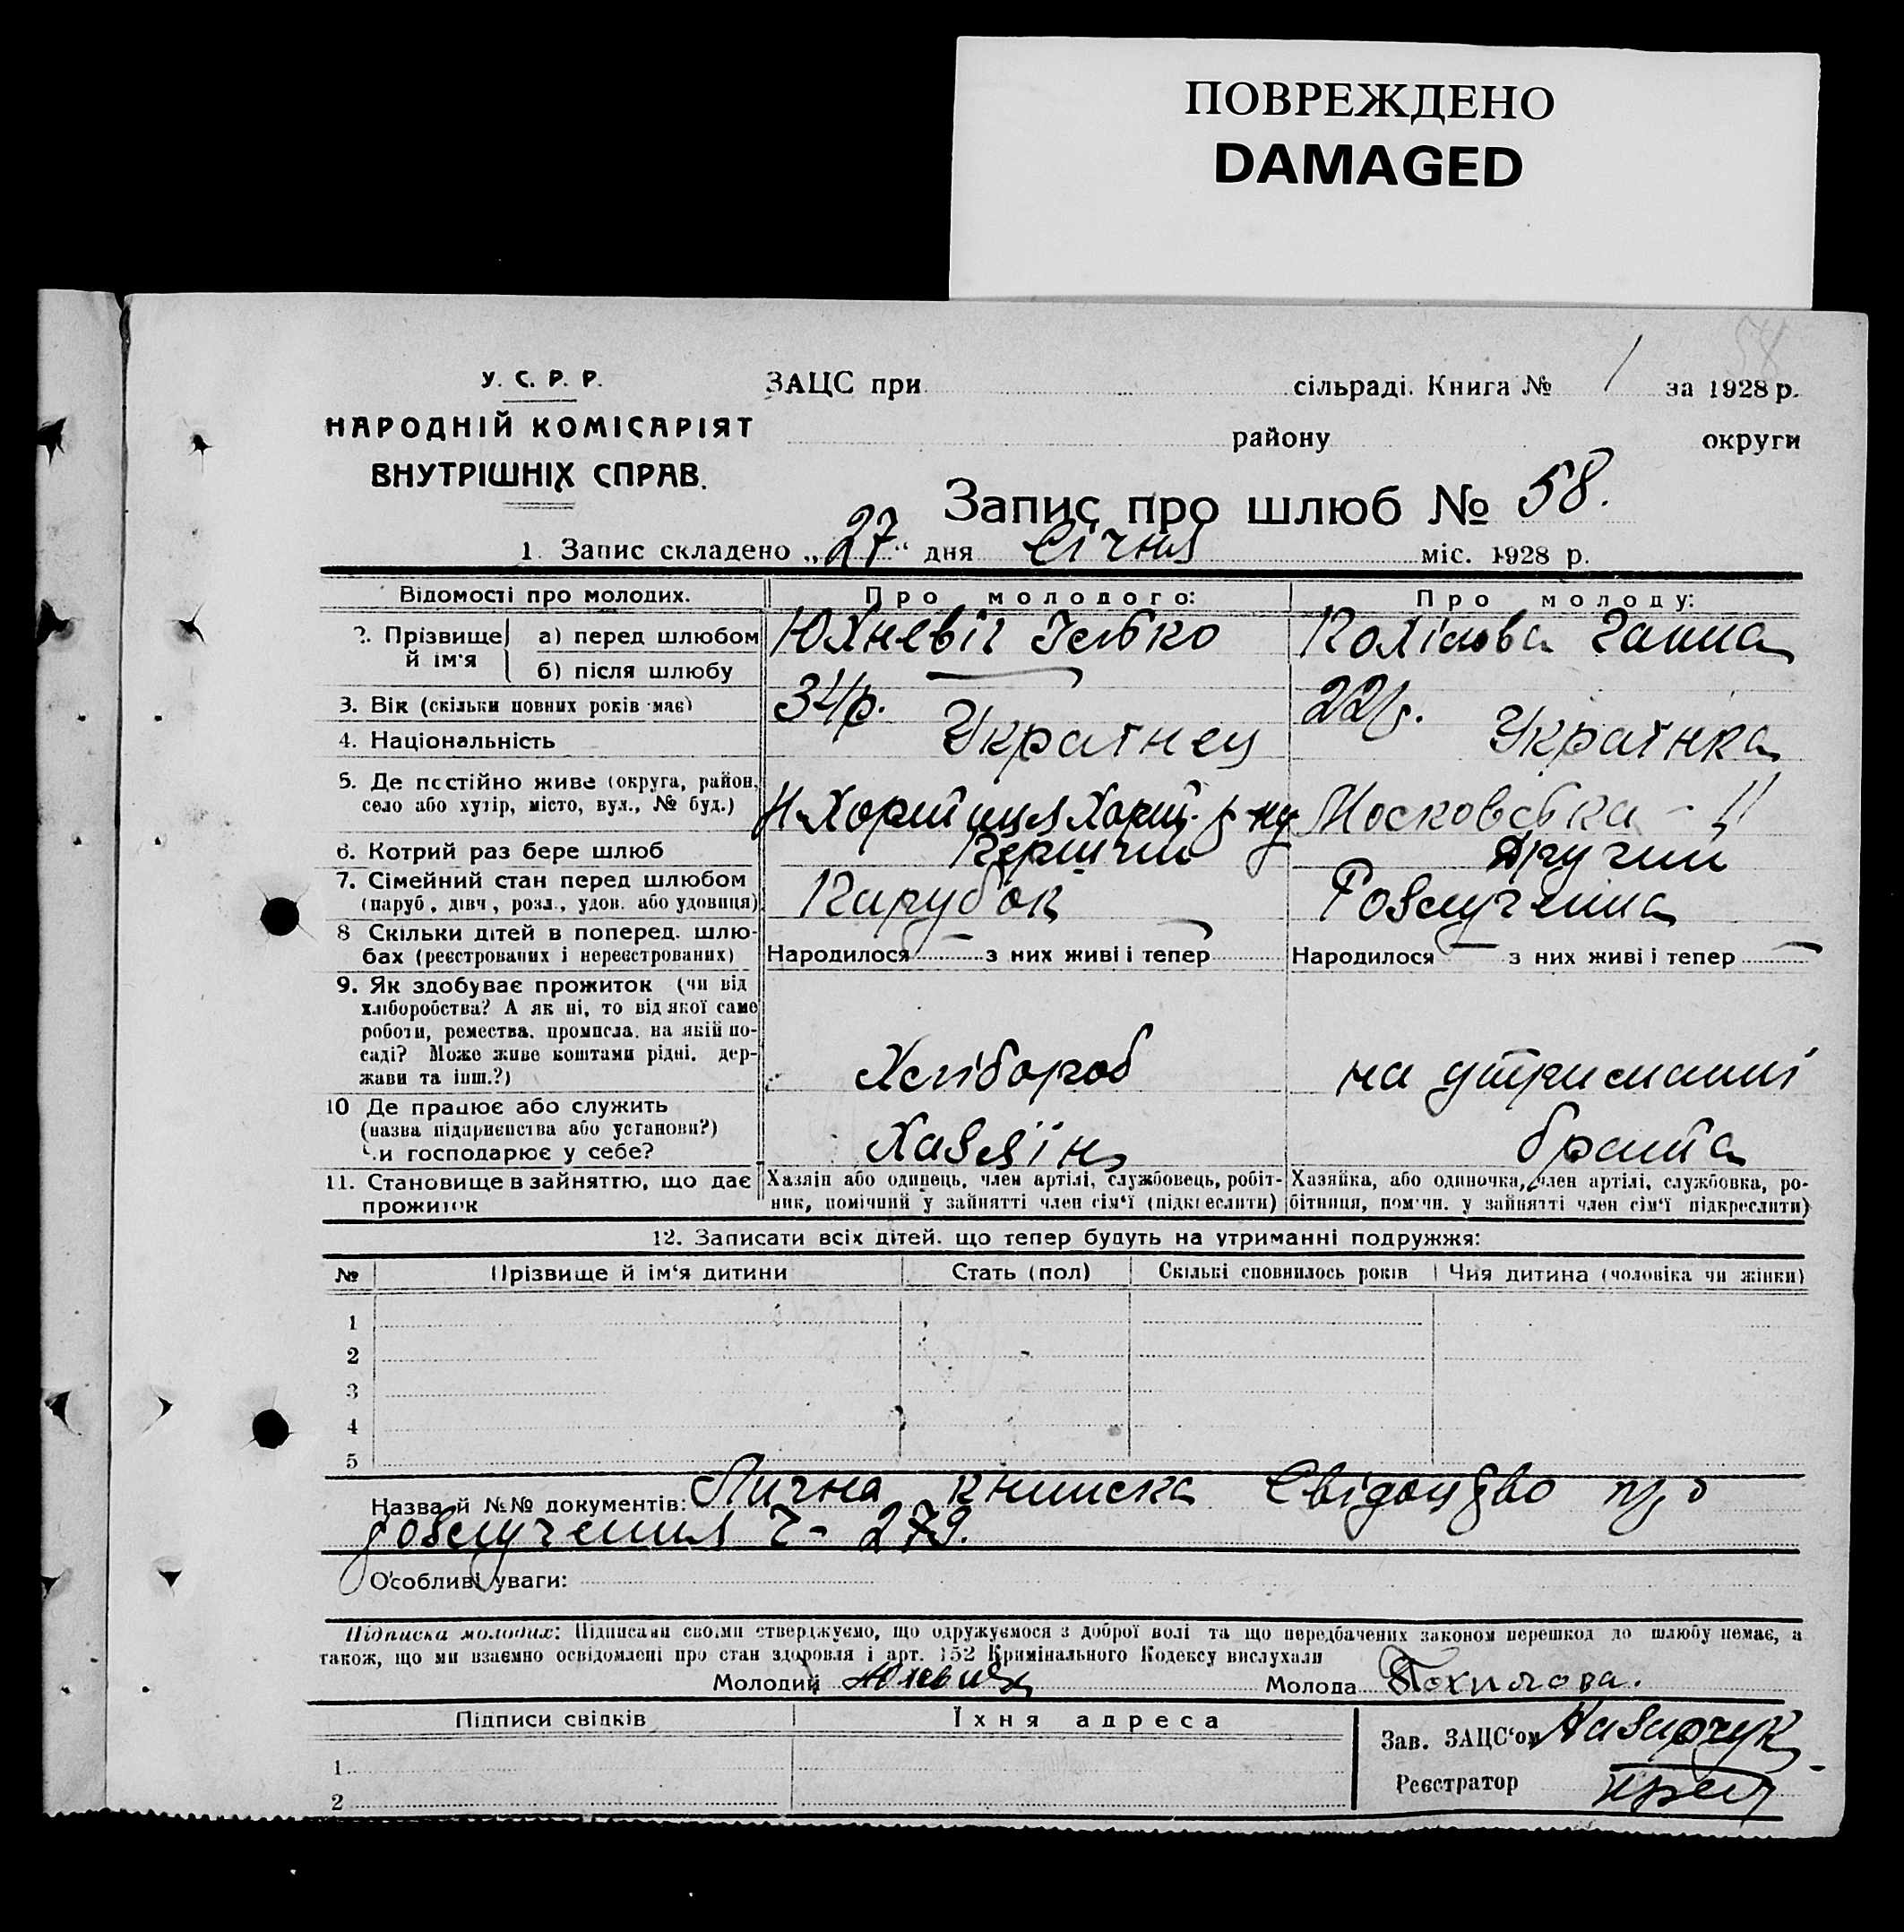 ПОВРЕЖДЕНО
DAMAGED
У. С. Р. Р.
НАРОДНІЙ КОМІСАРІЯТ
ВНУТРІШНІХ СПРАВ.
58
ЗАЦС при сільраді. Книга № 1 за 1928 р.
району округи
Запис про шлюб № 58.
1. Запис складено „27“ дня Січня міс. 1928 р.
Відомості про молодих. Про молодого: Про молоду:
2. Прізвище й ім'я
а) перед шлюбом Юхневіч Ганна
б) після шлюбу
3. Вік (скільки повних років має) 34 р. 22 р.
4. Національність Українец Українка
5. Де постійно живе (округа, район,
село або хутір, місто, вул., № буд.) Н. Хортиця Хорт. р-ну Московська - 11
6. Котрий раз бере шлюб Перший Другий
7. Сімейний стан перед шлюбом
(паруб., дівч., розл., удов. або удовиця) Парубок Розлученна
8 Скільки дітей в поперед. шлю-
бах (реєстрованих і нереєстрованих) Народилося — з них живі і тепер — Народилося — з них живі і тепер —
9. Як здобуває прожиток (чи від
хліборобства? А як ні, то від якої саме
роботи, ремества, промисла, на якій по-
саді? Може живе коштами рідні, дер-
жави та інш.?) Хлібороб на утриманні
10 Де працює або служить
(назва підприємства або установи?)
Чи господарює у себе? Хазяїн брата
11. Становище в зайняттю, що дає
прожиток
Хазяїн або одинець, член артілі, службовець, робіт-
ник, помічний у зайнятті член сім'ї (підкреслити)
Хазяйка, або одиночка, член артілі, службовка, ро-
бітниця, поміч. у зайнятті член сім'ї підкреслити)
12. Записати всіх дітей, що тепер будуть на утриманні подружжя:
№ Прізвище й ім'я дитини Стать (пол) Скількі сповнилось років Чия дитина (чоловіка чи жінки)
1
2
3
4
5
Назва й №№ документів: Лична книжка Свідоцтво про
розлучення ч- 279.
Особливі уваги:
Підписка молодих: Підписами своїми стверджуємо, що одружуємося з доброї волі та що передбачених законом перешкод до шлюбу немає, а
також, що ми взаємно освідомлені про стан здоровля і арт. 152 Кримінального Кодексу вислухали
Молодий Молода Похилова.
Підписи свідків Їхня адреса
Зав. ЗАЦС'ом Назарчук
1
Реєстратор
2